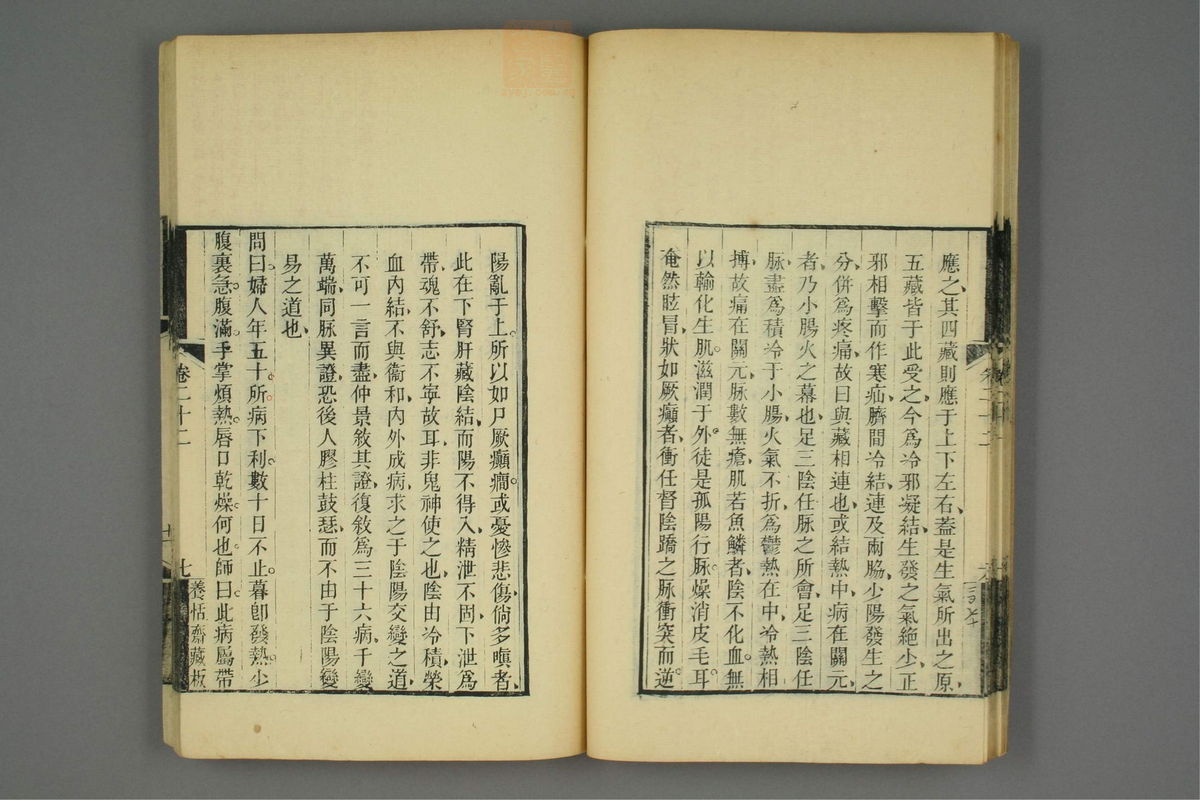 應之其四藏則應于上下左右、蓋是生氣所出之原、
五藏皆于此受之今爲冷邪凝結、生發之氣絶少、正
邪相擊而作寒疝、臍間冷結、連及兩脇、少陽發生之
分、併爲疼痛、故曰與藏相連也、或結熱中、病在關元、
者、乃小腸火之募也、足三陰任脉之所會、足三陰任
脉、盡爲積冷于小腸、火氣不折、爲鬱熱在中、冷熱相
摶、故痛在關元、脉數無瘡、肌若魚鱗者、陰不化血、無
以輸化生肌。滋潤于外。徒是孤陽行脉。燥消皮毛耳
奄然眩冒、狀如厥癲者、衝任督陰蹻之脉衝突而逆。
陽亂于上。所以如尸厥癲癎。或憂慘悲傷、倘多嗔者、
此在下腎肝藏陰結、而陽不得入、精泄不固、下泄爲
帶、魂不舒、志不寧故耳、非鬼神使之也、陰由冷積、榮
血內結、不與衞和、內外成病、求之于陰陽交變之道、
不可一言而盡、仲景敘其證、復敘爲三十六病、千變
萬端、同脉異證、恐後人膠柱鼓瑟、而不由于陰陽變
易之道也、
問曰。婦人年五十。所病下利。數十日不止。暮卽發熱。少
腹裏急。腹滿。手掌煩熱。唇口乾燥。何也。師曰。此病屬帶
卷二十二
七
養恬齋藏板